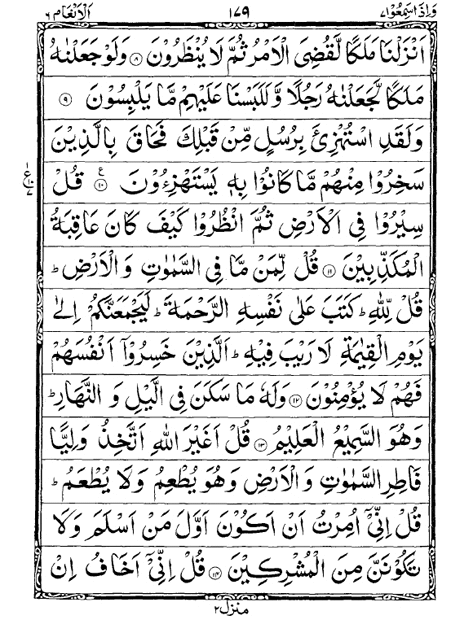 وَاِذَا سَمِعُوْا ٧ ١٧٩ اَلْاَنْعَام ٦
اَنْزَلْنَا مَلَكًا لَّقُضِیَ الْاَمْرُ ثُمَّ لَا یُنْظَرُوْنَ ۝٨ وَلَوْ جَعَلْنٰهُ
مَلَكًا لَّجَعَلْنٰهُ رَجُلًا وَّلَلَبَسْنَا عَلَیْهِمْ مَّا یَلْبِسُوْنَ ۝٩
وَلَقَدِ اسْتُهْزِئَ بِرُسُلٍ مِّنْ قَبْلِكَ فَحَاقَ بِالَّذِیْنَ
سَخِرُوْا مِنْهُمْ مَّا كَانُوْا بِهٖ یَسْتَهْزِءُوْنَ ۝١٠ قُلْ
سِیْرُوْا فِی الْاَرْضِ ثُمَّ انْظُرُوْا كَیْفَ كَانَ عَاقِبَةُ
الْمُكَذِّبِیْنَ ۝١١ قُلْ لِّمَنْ مَّا فِی السَّمٰوٰتِ وَالْاَرْضِ ؕ
قُلْ لِّلّٰهِ ؕ كَتَبَ عَلٰی نَفْسِهِ الرَّحْمَةَ ؕ لَیَجْمَعَنَّكُمْ اِلٰی
یَوْمِ الْقِیٰمَةِ لَا رَیْبَ فِیْهِ ؕ اَلَّذِیْنَ خَسِرُوْۤا اَنْفُسَهُمْ
فَهُمْ لَا یُؤْمِنُوْنَ ۝١٢ وَلَهٗ مَا سَكَنَ فِی الَّیْلِ وَ النَّهَارِ ؕ
وَهُوَ السَّمِیْعُ الْعَلِیْمُ ۝١٣ قُلْ اَغَیْرَ اللّٰهِ اَتَّخِذُ وَلِیًّا
فَاطِرِ السَّمٰوٰتِ وَ الْاَرْضِ وَهُوَ یُطْعِمُ وَلَا یُطْعَمُ ؕ
قُلْ اِنِّیْۤ اُمِرْتُ اَنْ اَكُوْنَ اَوَّلَ مَنْ اَسْلَمَ وَلَا
تَكُوْنَنَّ مِنَ الْمُشْرِكِیْنَ ۝١٤ قُلْ اِنِّیْۤ اَخَافُ اِنْ
منزل ٢